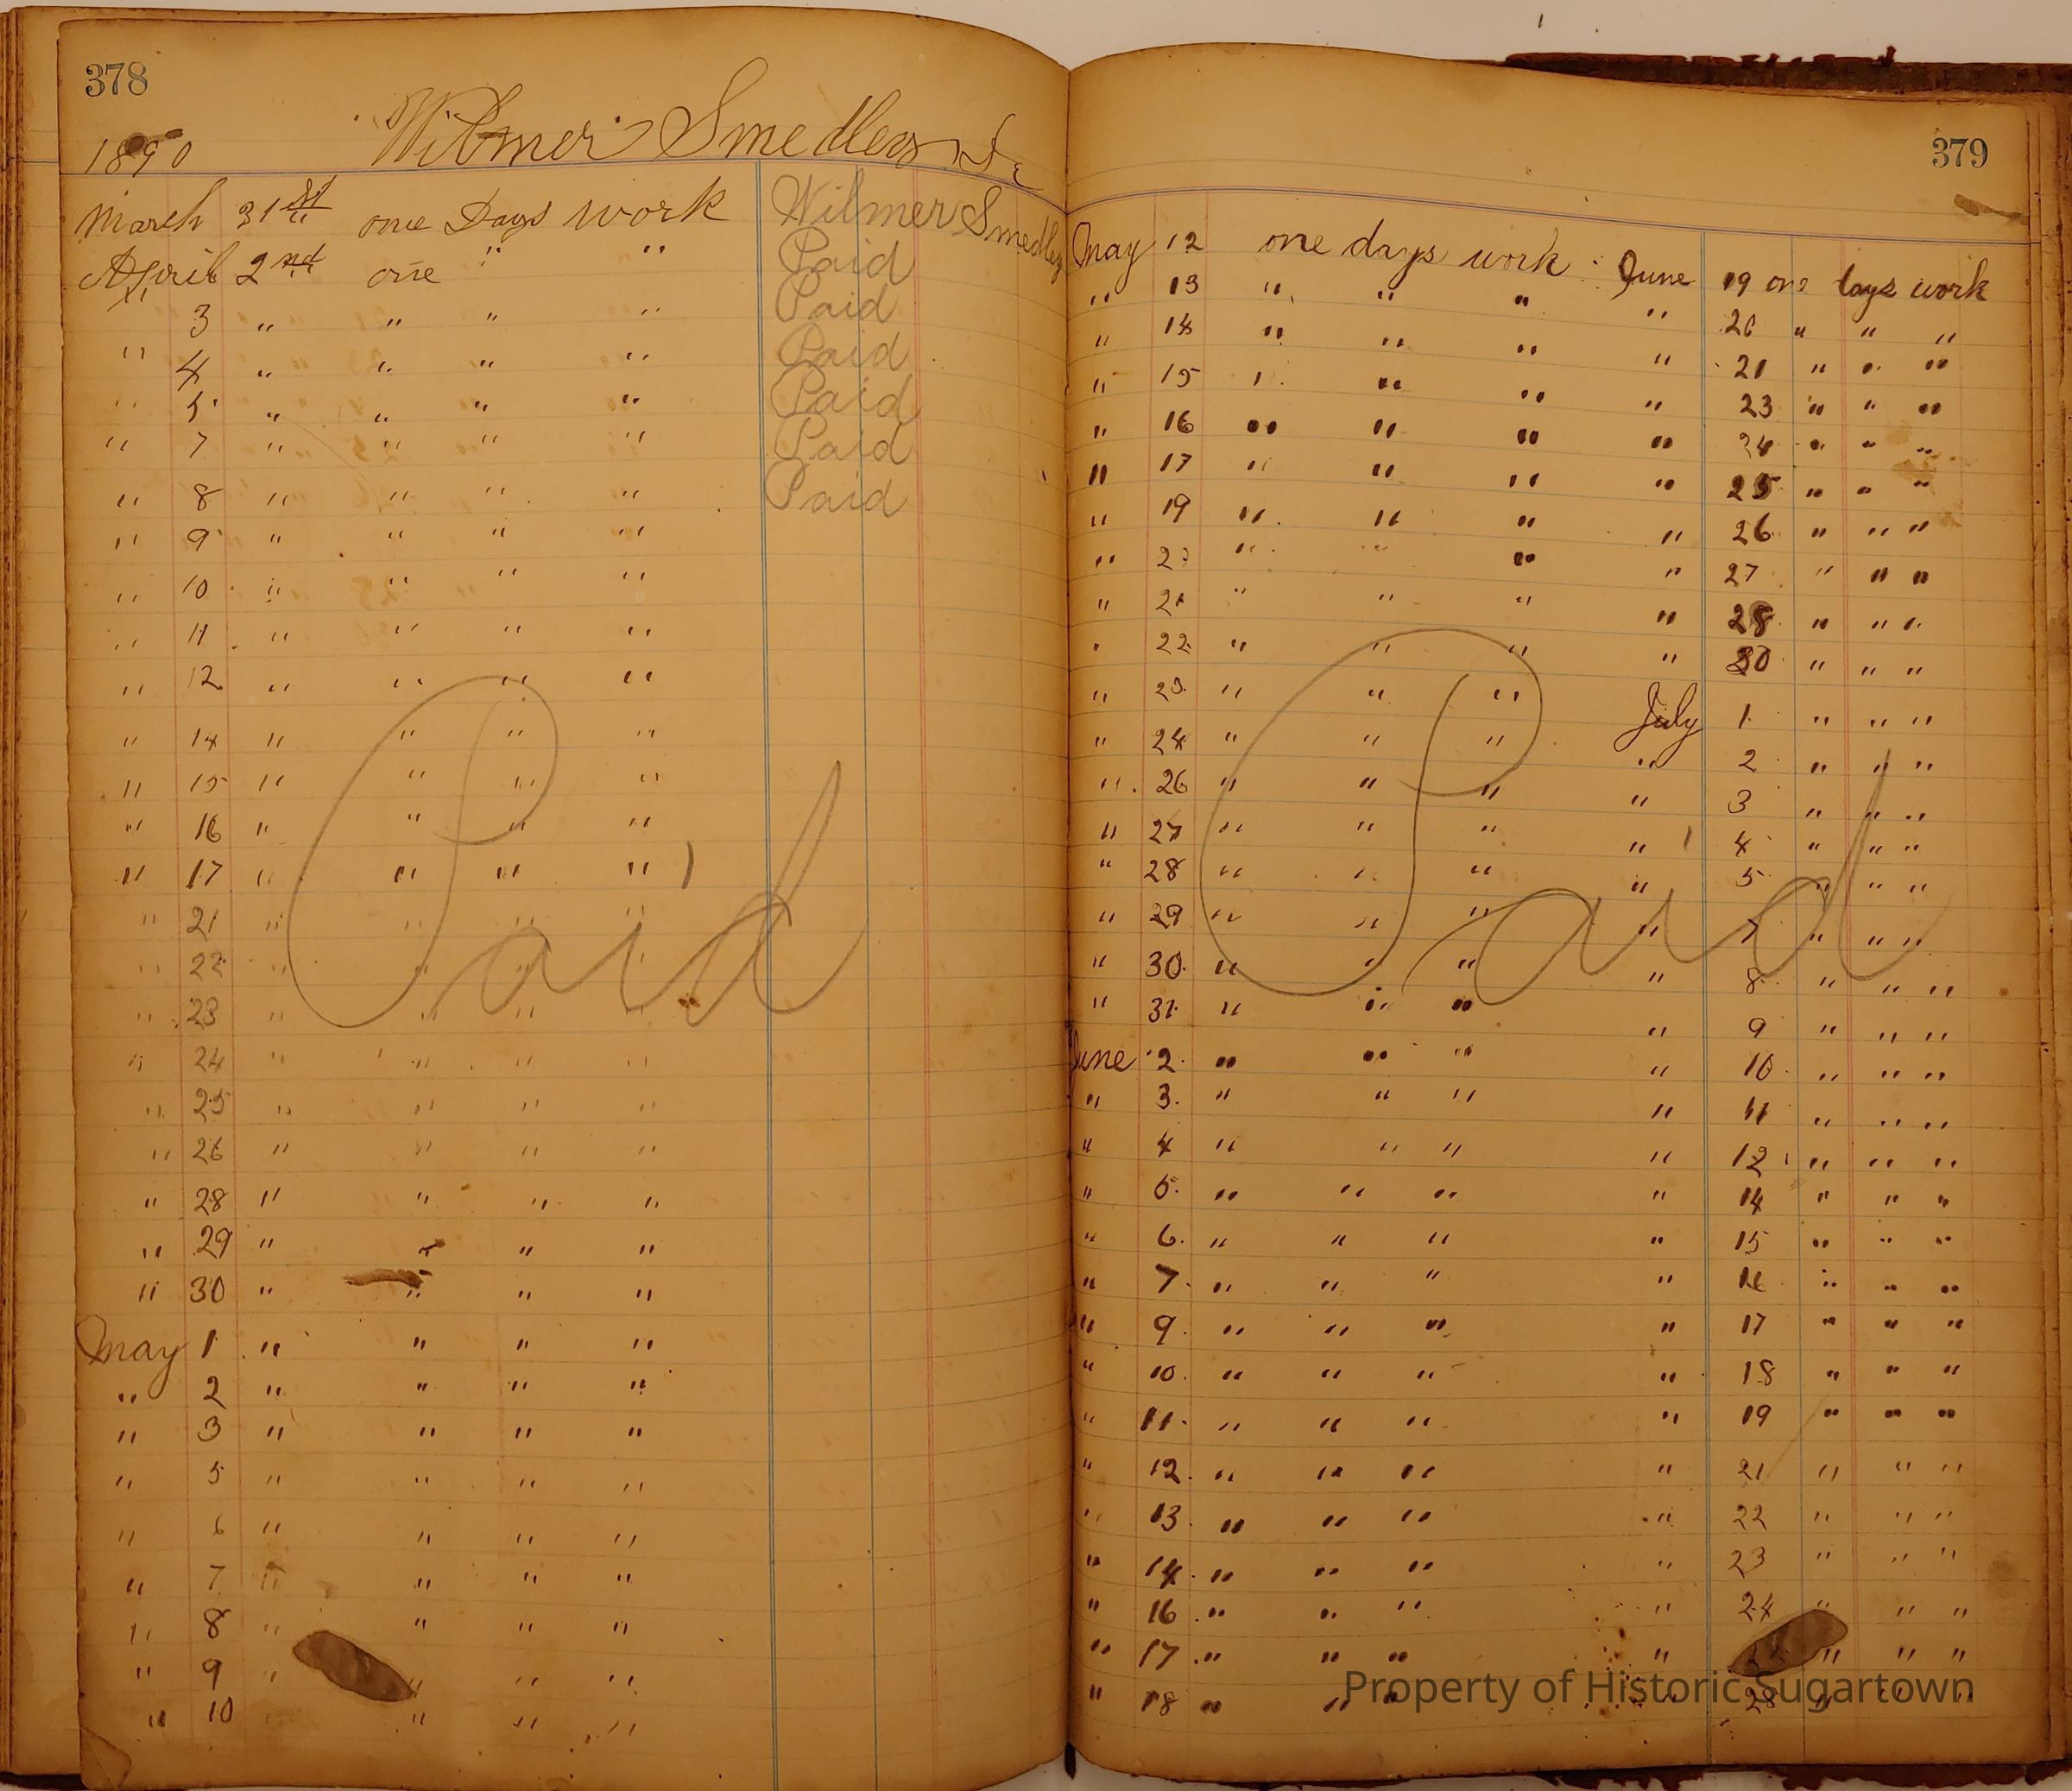 378
1890 Wilmer Smedley
March 31st one Days work Wilmer Smedley
April 2nd one " " Paid
" 3 " " " " Paid
" 4 " " " " Paid
" 5 " " " " Paid
" 7 " " " " Paid
" 8 " " " " Paid
" 9 " " " "
" 10 " " " "
" 11 " " " "
" 12 " " " "
" 14 " " " "
" 15 " " " "
" 16 " " " "
" 17 " " " "
" 21 " " " "
" 22 " " " "
" 23 " " " "
" 24 " " " "
" 25 " " " "
" 26 " " " "
" 28 " " " "
" 29 " " " "
" 30 " " " "
May 1 " " " "
" 2 " " " "
" 3 " " " "
" 5 " " " "
" 6 " " " "
" 7 " " " "
" 8 " " " "
" 9 " " " "
" 10 " " "
Paid
379
May 12 one days work
" 13 " " "
" 14 " " "
" 15 " " "
" 16 " " "
" 17 " " "
" 19 " " "
" " " "
" 21 " " "
" 22 " " "
" 23 " " "
" 24 " " "
" 26 " " "
" 27 " " "
" 28 " " "
" 29 " " "
" 30 " " "
" 31 " " "
June 2 " " "
" 3 " " "
" 4 " " "
" 5 " " "
" 6 " " "
" 7 " " "
" 9 " " "
" 10 " " "
" 11 " " "
" 12 " " "
" 13 " " "
" 14 " " "
" 16 " " "
" 17 " " "
" 18 " " "
June 19 one days work
" 20 " " "
" 21 " " "
" 23 " " "
" 24 " " "
" 25 " " "
" 26 " " "
" 27 " " "
" 28 " " "
" 30 " " "
July 1 " " "
" 2 " " "
" 3 " " "
" 4 " " "
" 5 " " "
" 7 " " "
" 8 " " "
" 9 " " "
" 10 " " "
" 11 " " "
" 12 " " "
" 14 " " "
" 15 " " "
" 16 " " "
" 17 " " "
" 18 " " "
" 19 " " "
" 21 " " "
" 22 " " "
" 23 " " "
" 24 " " "
" " " "
" 28 " " "
Paid
Property of Historic Sugartown